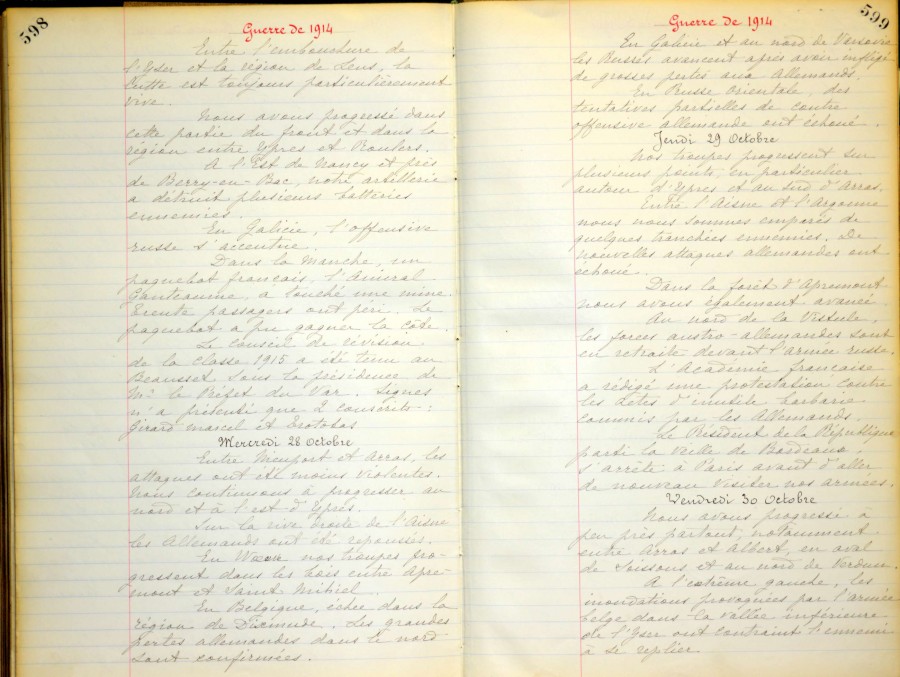 598
Guerre de 1914
Entre l'embouchure de
l'Yser et la région de Lens, la
lutte est toujours particulièrement
vive.
Nous avons progressé dans
cette partie du front et dans la
région entre Ypres et Roulers.
A l'Est de Nancy et près
de Berry-en-Bac, notre artillerie
a détruit plusieurs batteries
ennemies.
En Galicie, l'offensive
russe s'accentue.
Dans la Manche, un
paquebot français, l'Amiral
Ganteaume, a touché une mine.
Trente passagers ont péri. Le
paquebot a pu gagner la côte.
Le Conseil de révision
de la classe 1915 a été tenu au
Beausset sous la présidence de
Mr le Préfet du Var. Signes
n'a présenté que 2 conscrits :
Girard Marcel et
Mercredi 28 Octobre
Entre Nieuport et Arras, les
attaques ont été moins violentes.
Nous continuons à progresser au
nord et à l'est d'Ypres.
Sur la rive droite de l'Aisne
les Allemands ont été repoussés.
En Woevre nos troupes pro-
gressent dans les bois entre Apre-
mont et Saint-Mihiel.
En Belgique, échec dans la
région de Dixmude. Les grandes
pertes allemandes dans le nord
sont confirmées.
599
Guerre de 1914
En Galicie et au nord de Varsovie
les Russes avancent après avoir infligé
de grosses pertes aux Allemands.
En Russe Orientale, des
tentatives partielles de contre
offensive allemande ont échoué.
Jeudi 29 Octobre
Nos troupes progressent sur
plusieurs points, en particulier
autour d'Ypres et au sud d'Arras.
Entre l'Aisne et l'Argonne
nous nous sommes emparés de
quelques tranchées ennemies. De
nouvelles attaques allemandes ont
échoué.
Dans la forêt d'Apremont
nous avons également avancé.
Au nord de la Vistule,
les forces austro-allemandes sont
en retraite devant l'armée russe.
L'Académie française
a rédigé une protestation contre
les actes d'inutile barbarie
commis par les Allemands.
Le Président de la République
parti la veille de Bordeaux,
s'arrête à Paris avant d'aller
de nouveau visiter nos armées.
Vendredi 30 Octobre
Nous avons progressé à
peu près partout, notamment
entre Arras et Albert, en aval
de Soissons et au nord de Verdun.
A l'extrême gauche, les
inondations provoquées par l'armée
belge dans la vallée inférieure
de l'Yser ont contraint l'ennemi
à se replier.